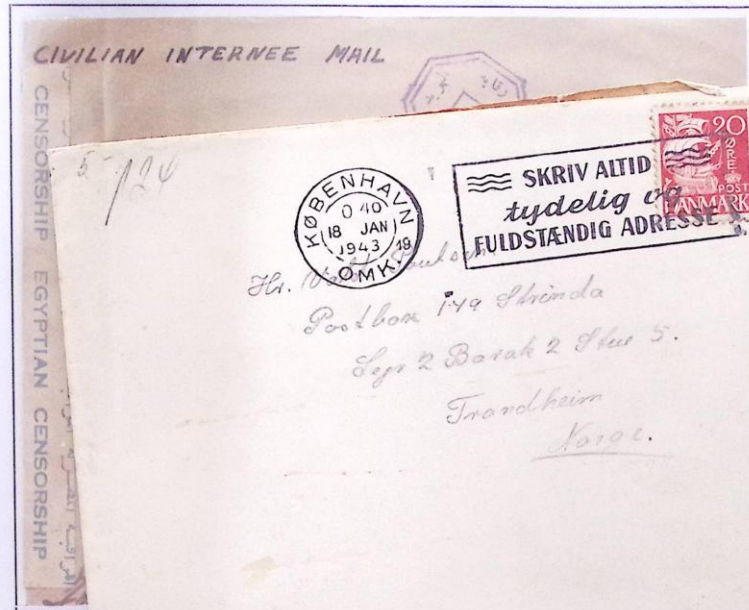 CIVILIAN INTERNEE MAIL
CENSORSHIP EGYPTIAN CENSORSHIP
5
124
KØBENHAVN
0 40
18 JAN
1943
19
OMK.
SKRIV ALTID
tydelig og
FULDSTÆNDIG ADRESSE
20
ØRE
POST
DANMARK
Hr.
Postbox 149 Strinda
2 Barak 2 Stue 5.
Trondheim
Norge.